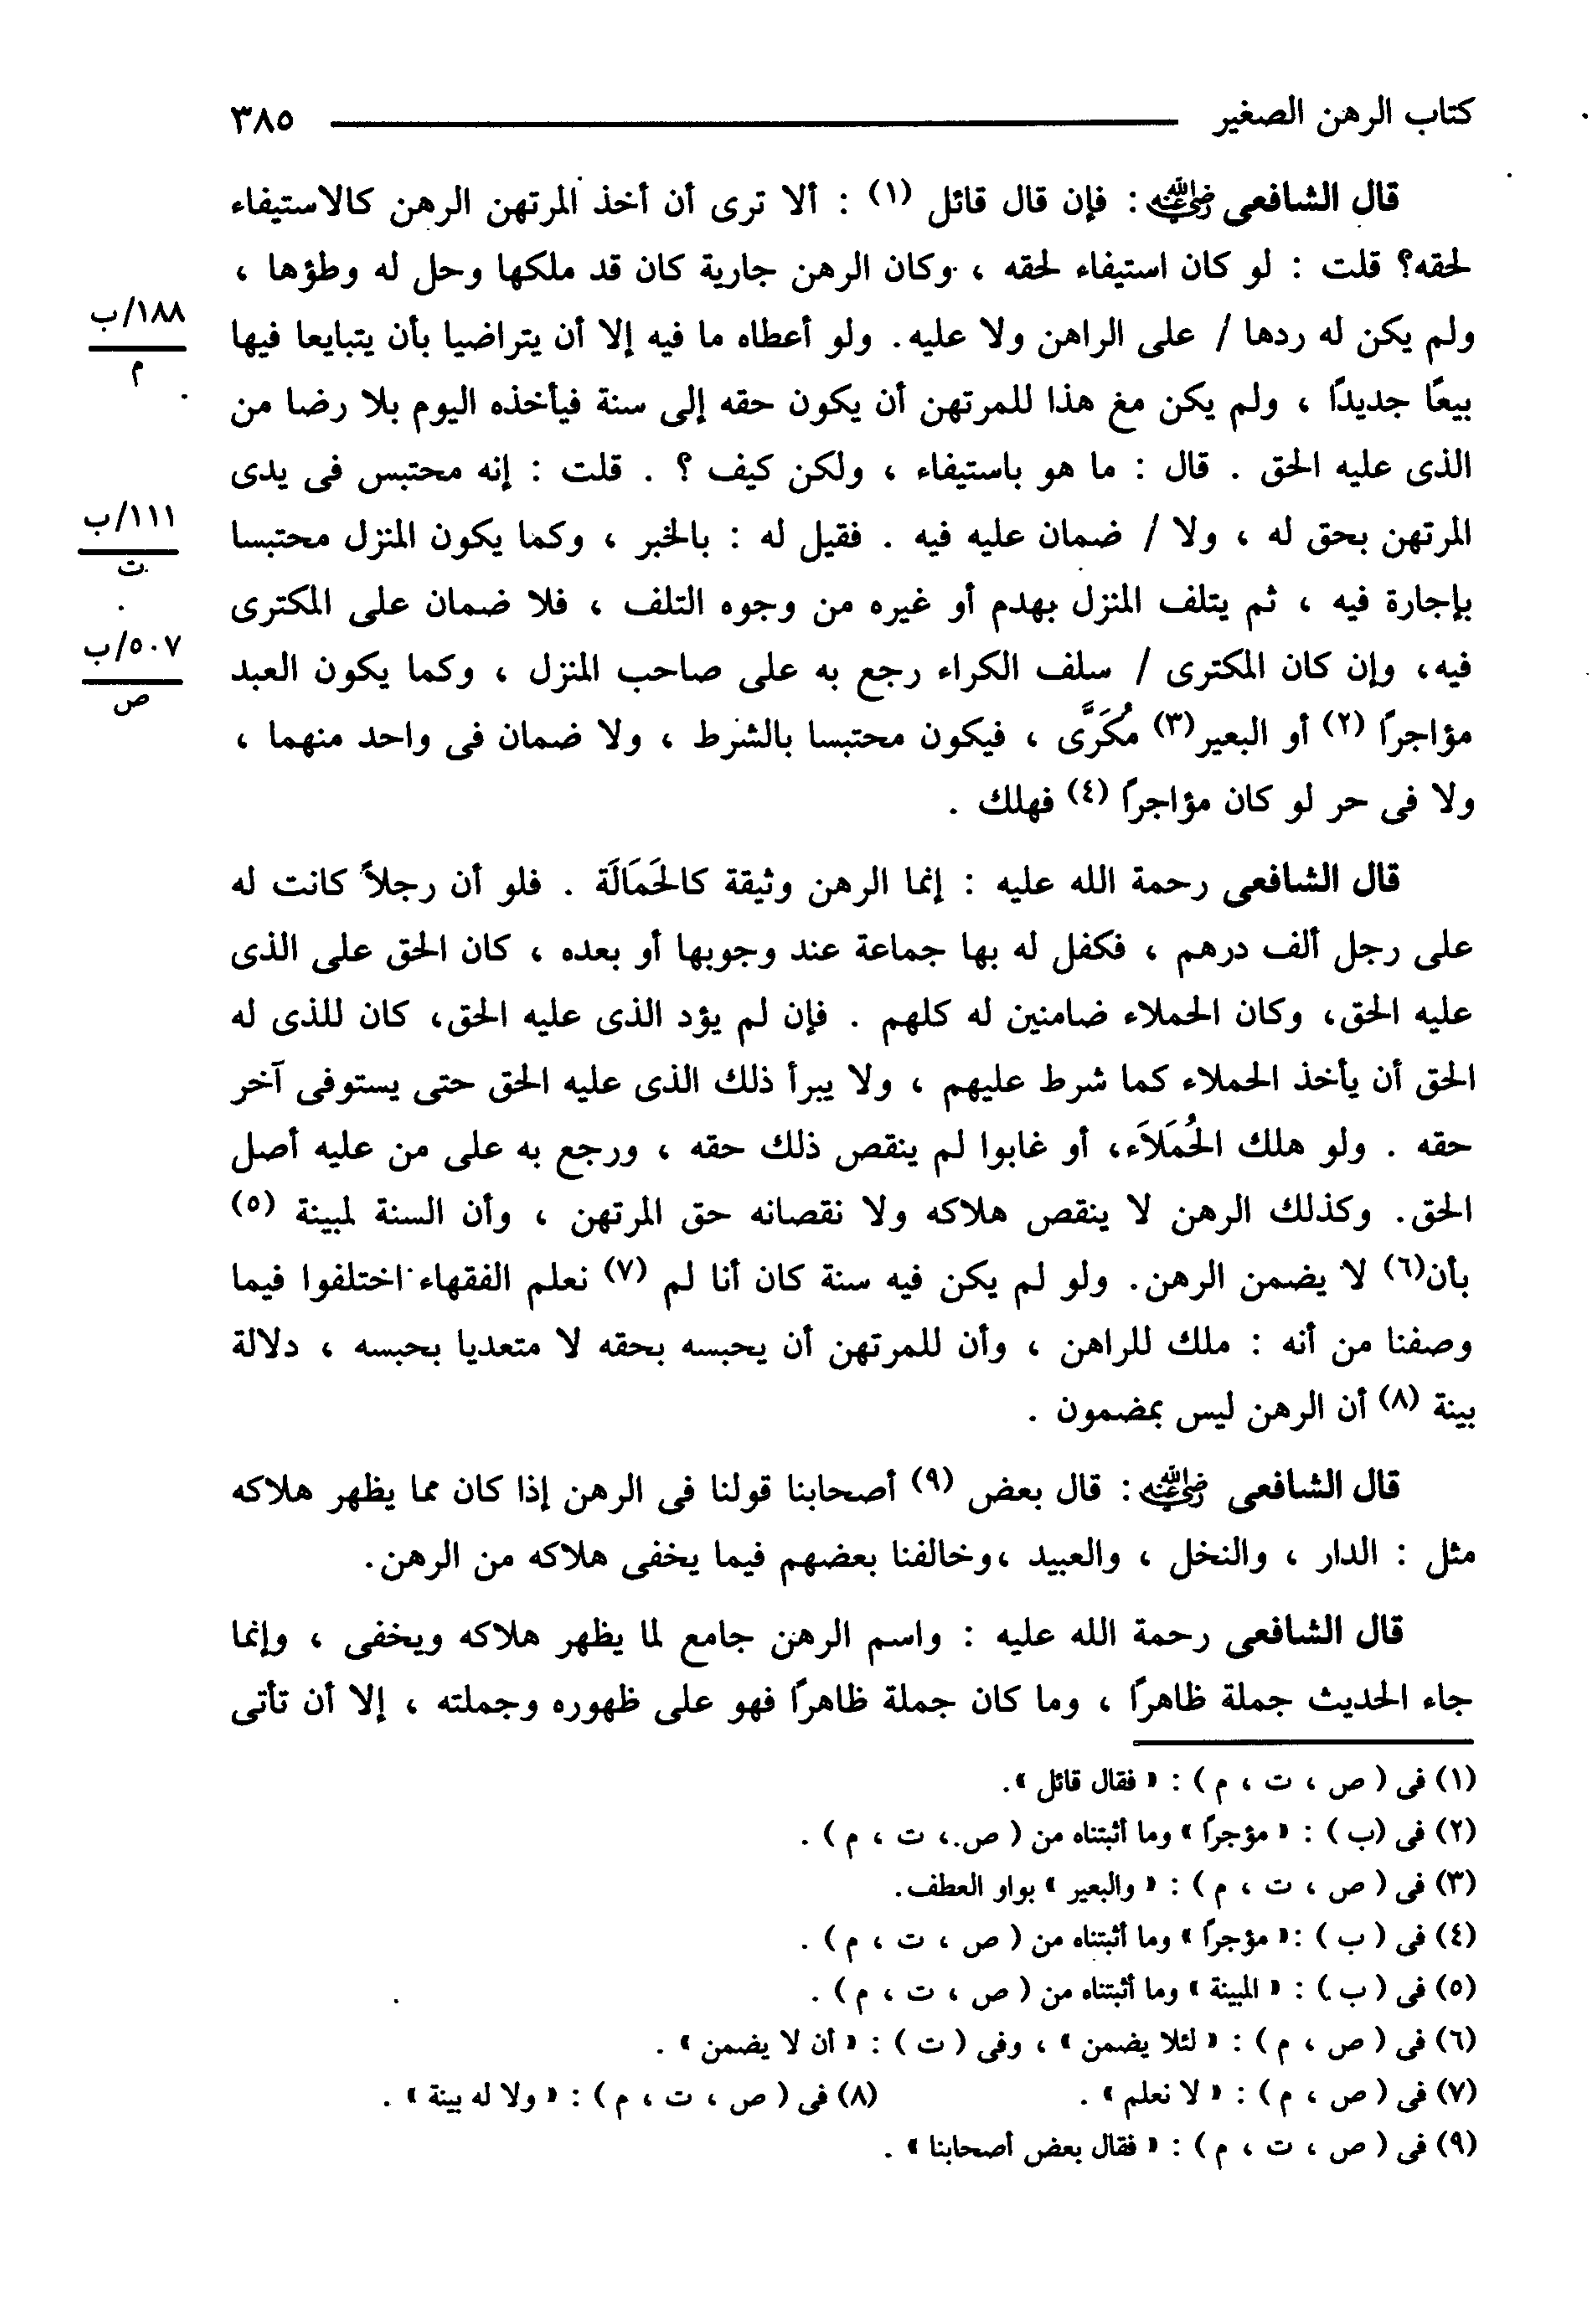 كتاب الرهن الصغير ــــــــــــــ ٣٨٥
قال الشافعى رضي الله عنه : فإن قال قائل (١) : ألا ترى أن أخذ المرتهن الرهن كالاستيفاء
لحقه؟ قلت : لو كان استيفاء لحقه ، وكان الرهن جارية كان قد ملكها وحل له وطؤها ،
ولم يكن له ردها / على الراهن ولا عليه. ولو أعطاه ما فيه إلا أن يتراضيا بأن يتبايعا فيها
١٨٨/ب
م
بيعًا جديدًا ، ولم يكن مع هذا للمرتهن أن يكون حقه إلى سنة فيأخذه اليوم بلا رضا من
الذى عليه الحق . قال : ما هو باستيفاء ، ولكن كيف ؟ . قلت : إنه محتبس فى يدى
المرتهن بحق له ، ولا / ضمان عليه فيه . فقيل له : بالخبر ، وكما يكون المنزل محتبسا
١١١/ب
ت
بإجارة فيه ، ثم يتلف المنزل بهدم أو غيره من وجوه التلف ، فلا ضمان على المكترى
فيه، وإن كان المكترى / سلف الكراء رجع به على صاحب المنزل ، وكما يكون العبد
٥٠٧/ب
ص
مؤاجرًا (٢) أو البعير(٣) مُكَرًّى ، فيكون محتبسا بالشرط ، ولا ضمان فى واحد منهما ،
ولا فى حر لو كان مؤاجرًا (٤) فهلك .
قال الشافعى رحمة الله عليه : إنما الرهن وثيقة كالحَمَالَة . فلو أن رجلاً كانت له
على رجل ألف درهم ، فكفل له بها جماعة عند وجوبها أو بعده ، كان الحق على الذى
عليه الحق، وكان الحملاء ضامنين له كلهم . فإن لم يؤد الذى عليه الحق، كان للذى له
الحق أن يأخذ الحملاء كما شرط عليهم ، ولا يبرأ ذلك الذى عليه الحق حتى يستوفى آخر
حقه . ولو هلك الحُمَلاَء، أو غابوا لم ينقص ذلك حقه ، ورجع به على من عليه أصل
الحق. وكذلك الرهن لا ينقص هلاكه ولا نقصانه حق المرتهن ، وأن السنة لمبينة (٥)
بأن(٦) لا يضمن الرهن. ولو لم يكن فيه سنة كان أنا لم (٧) نعلم الفقهاء اختلفوا فيما
وصفنا من أنه : ملك للراهن ، وأن للمرتهن أن يحبسه بحقه لا متعديا بحبسه ، دلالة
بينة (٨) أن الرهن ليس بمضمون .
قال الشافعى رضي الله عنه : قال بعض (٩) أصحابنا قولنا فى الرهن إذا كان مما يظهر هلاكه
مثل : الدار ، والنخل ، والعبيد ،وخالفنا بعضهم فيما يخفى هلاكه من الرهن.
قال الشافعى رحمة الله عليه : واسم الرهن جامع لما يظهر هلاكه ويخفى ، وإنما
جاء الحديث جملة ظاهرًا ، وما كان جملة ظاهرًا فهو على ظهوره وجملته ، إلا أن تأتى
(١) فى ( ص ، ت ، م ) : « فقال قائل ».
(٢) فى (ب ) : « مؤجرًا » وما أثبتناه من ( ص ، ت ، م ) .
(٣) فى ( ص ، ت ، م ) : « والبعير » بواو العطف.
(٤) فى ( ب ) :« مؤجرًا » وما أثبتناه من ( ص ، ت ، م ) .
(٥) فى ( ب ) : « المبينة » وما أثبتناه من ( ص ، ت ، م ) .
(٦) فى ( ص ، م ) : « لئلا يضمن » ، وفى ( ت ) : « أن لا يضمن » .
(٧) فى ( ص ، م ) : « لا نعلم » . (٨) فى ( ص ، ت ، م ) : « ولا له بينة » .
(٩) فى ( ص ، ت ، م ) : « فقال بعض أصحابنا » .